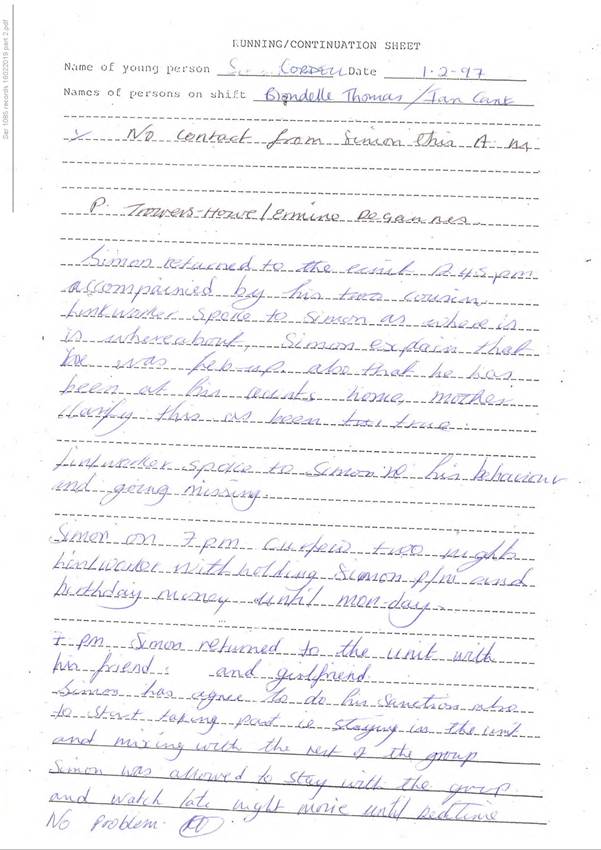 Sar 1085 records 18022019 part 2.pdf
RUNNING/CONTINUATION SHEET
Name of young person S CORDELL Date 1-2-97
Names of persons on shift Blondelle Thomas / Ian
No contact from Simon this A.M
P. Trowers-Howe / Ermine DeGannes.
Simon returned to the unit 12 45 pm
accompained by his two cousin
Linkworker spoke to Simon as where is
is whereabout, Simon explain that
he was feb up. also that he has
been at his aunts home, mother
clarify this as been true.
Linkworker spoke to Simon re his behaviour
and going missing.
Simon on 7 pm curfew two nights
Linkworker withholding Simon p/m and
birthday money until monday.
7 pm Simon returned to the unit with
his friend. and girlfriend.
Simon has agree to do his sanction also
to start taking part ie staying in the unit
and mixing with the rest of the group
Simon was allowed to stay with the group
and watch late night movie until bedtime
No problem.